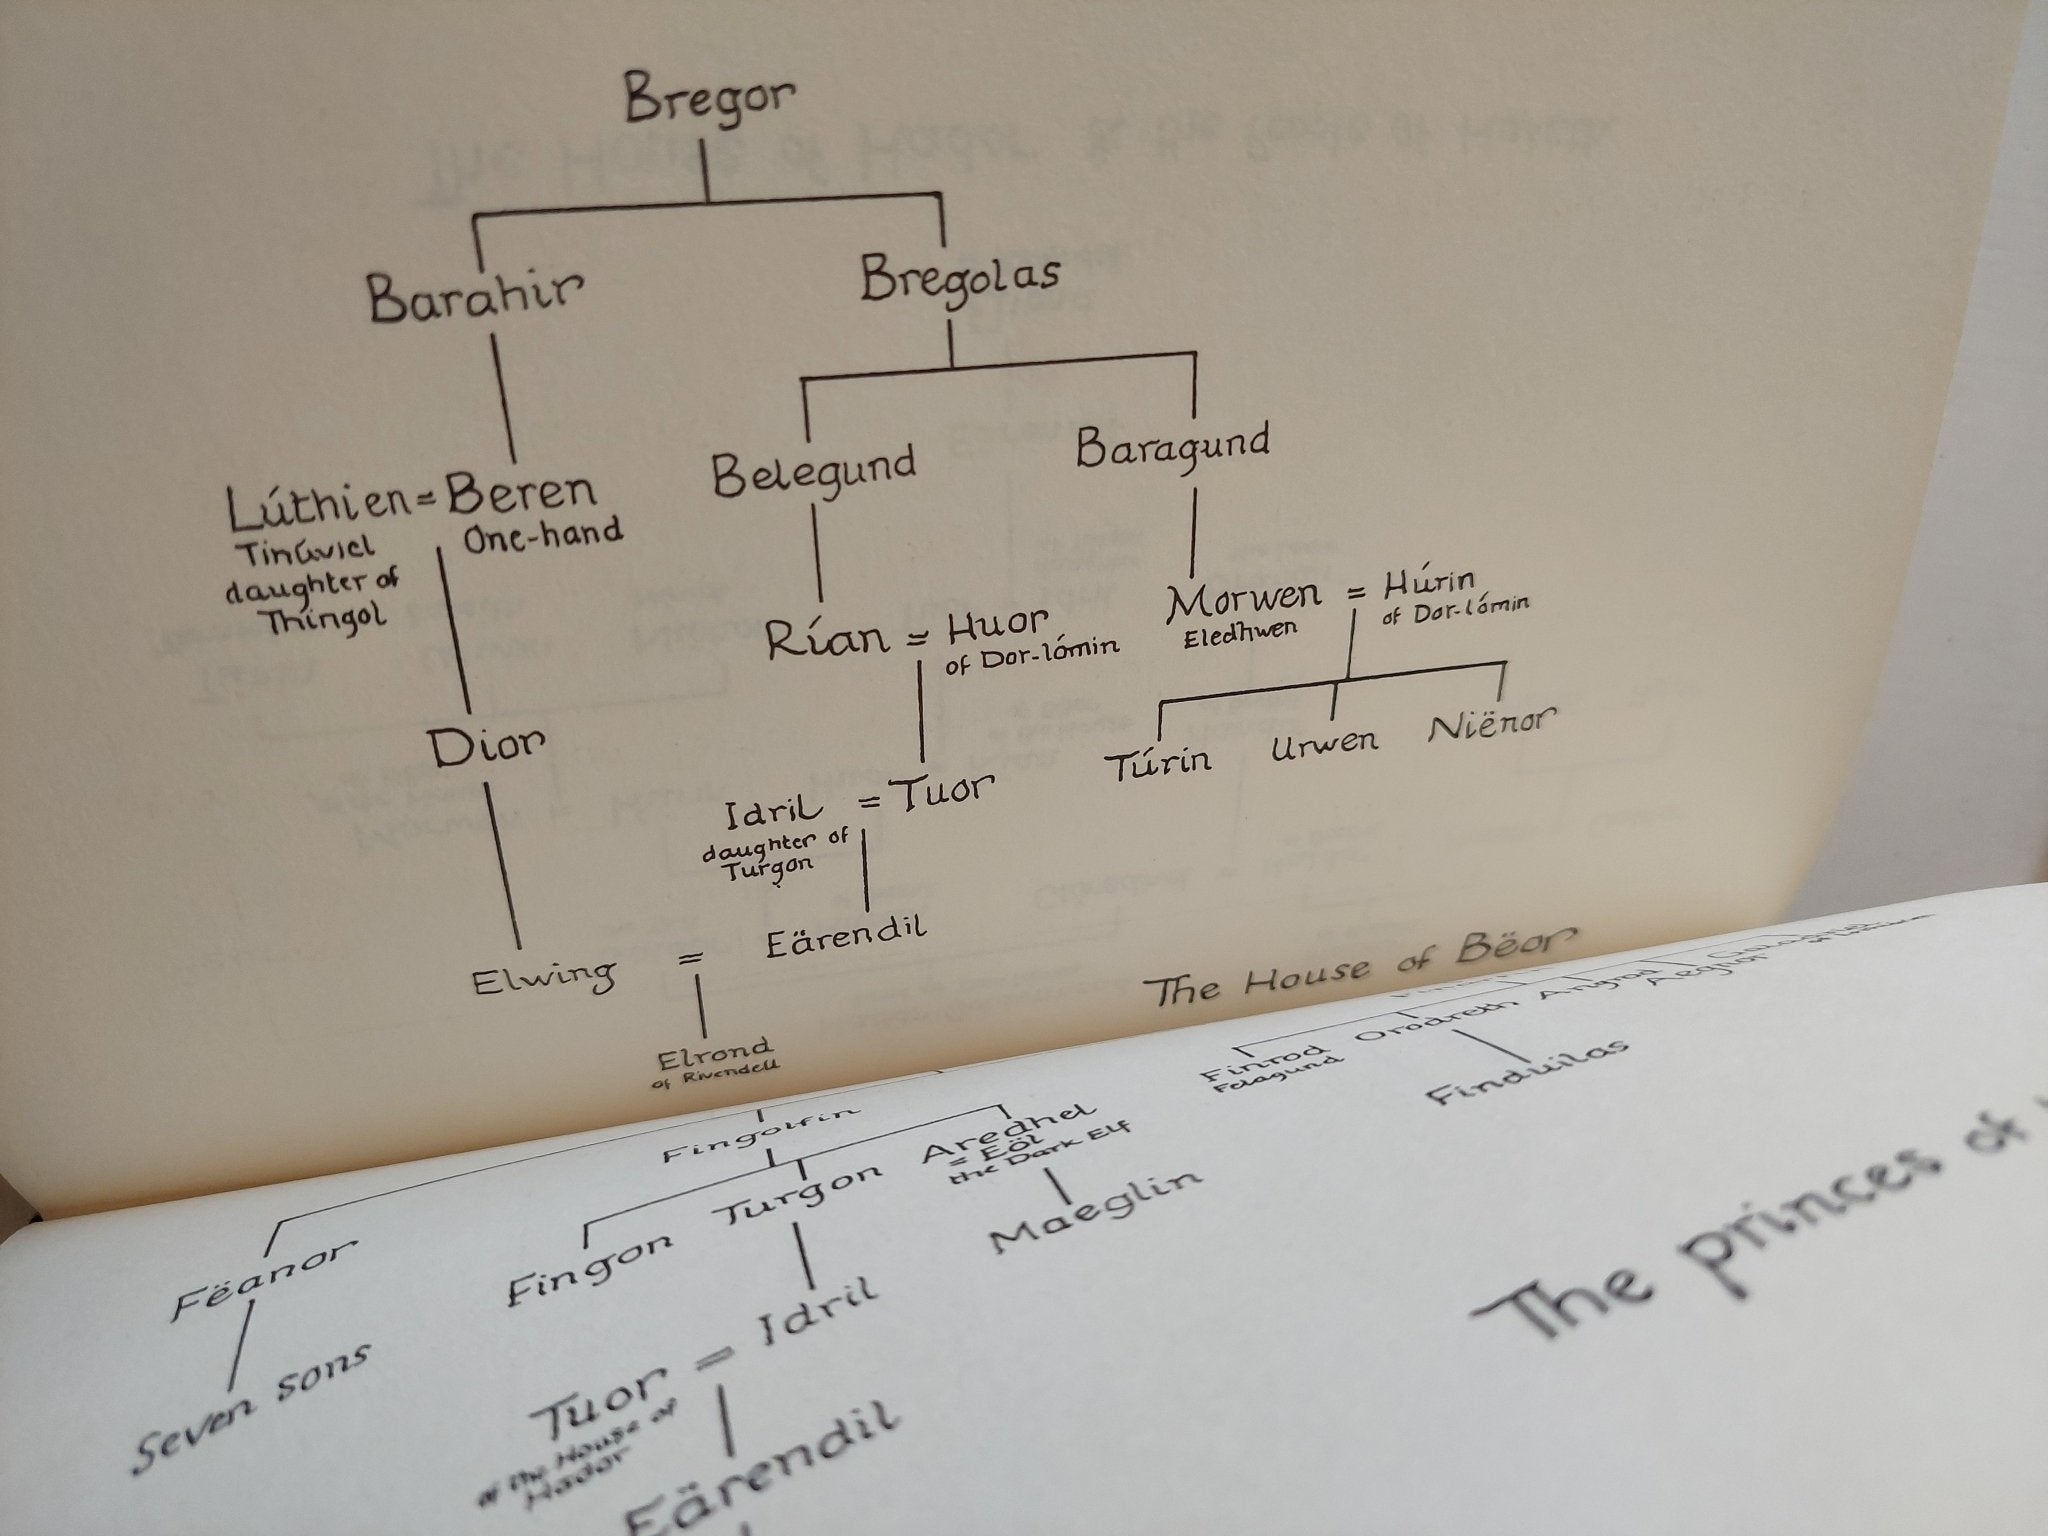 Bregor
Barahir
Bregolas
Belegund
Baragund
Lúthien = Beren
Tinúviel
daughter of
Thingol
One-hand
Rían = Huor
of Dor-lómin
Morwen = Húrin
Eledhwen
of Dor-lómin
Dior
Túrin
Urwen
Niënor
Idril = Tuor
daughter of
Turgon
Elwing = Eärendil
Elrond
of Rivendell
The House of Bëor
Fingolfin
Finrod
Felagund
Orodreth
Angrod
Aegnor
Finduilas
Fëanor
Fingon
Turgon
Aredhel
= Eöl
the Dark Elf
Seven sons
Maeglin
Tuor = Idril
of the House of
Hador
Eärendil
The princes of